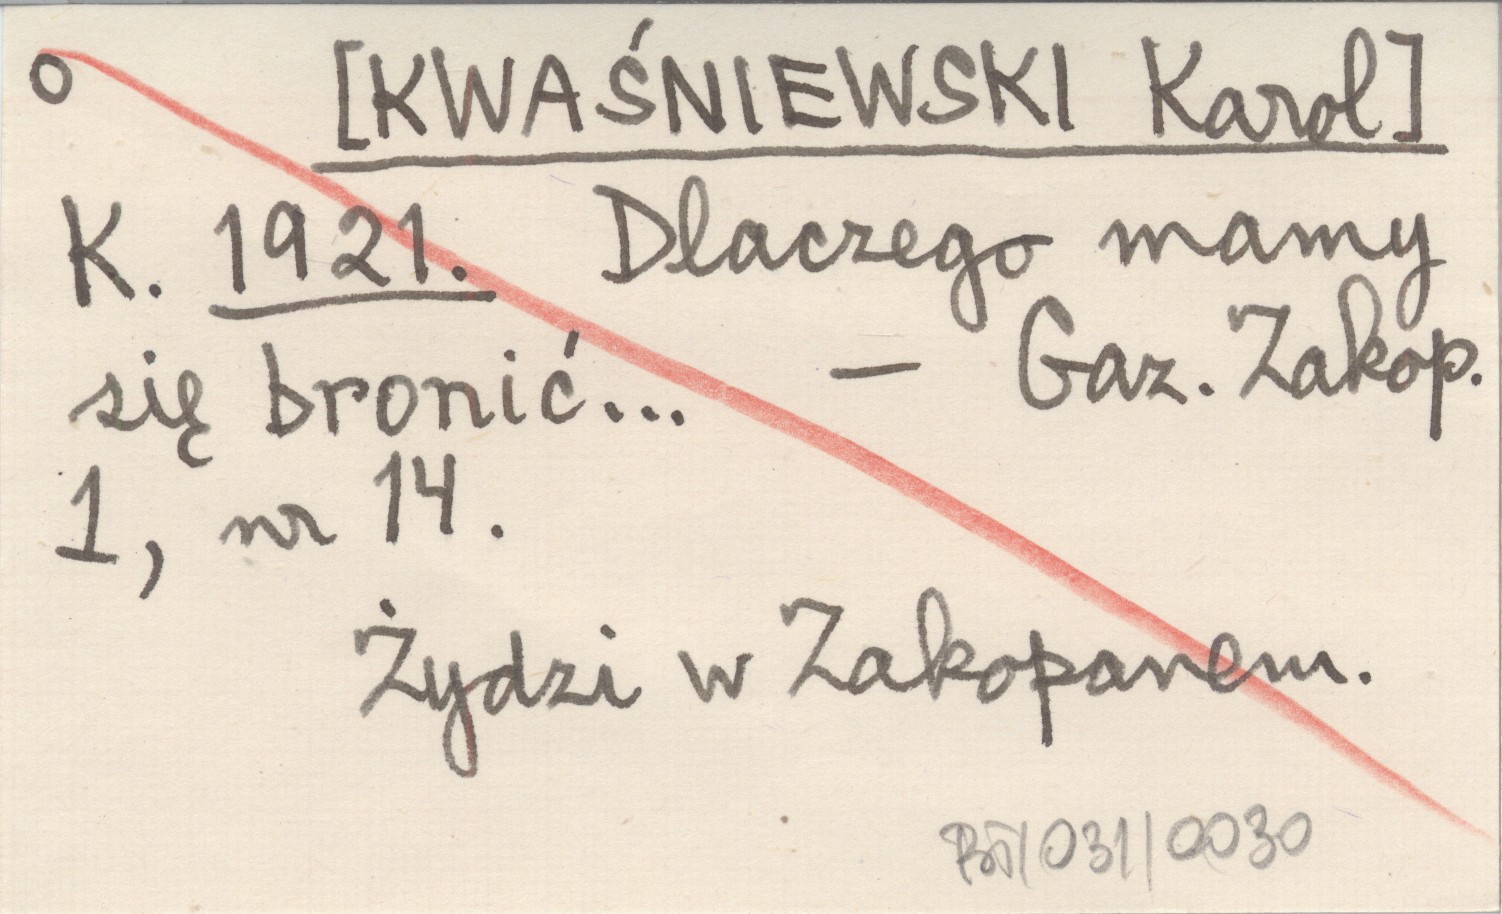 o [KWAŚNIEWSKI Karol]
K. 1921. Dlaczego mamy
się bronić... — Gaz. Zakop.
1, nr 14.
Żydzi w Zakopanem.
/031/0030